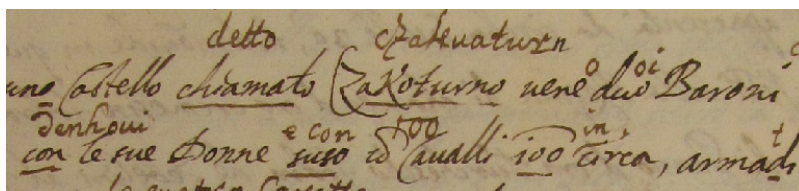 detto Czakenaturn
uno Castello chiamato Czakoturno uene o duo oi Baroni
denhoui e con 400 in t
con le sue Donne suso co Caualli 100 circa, armadi